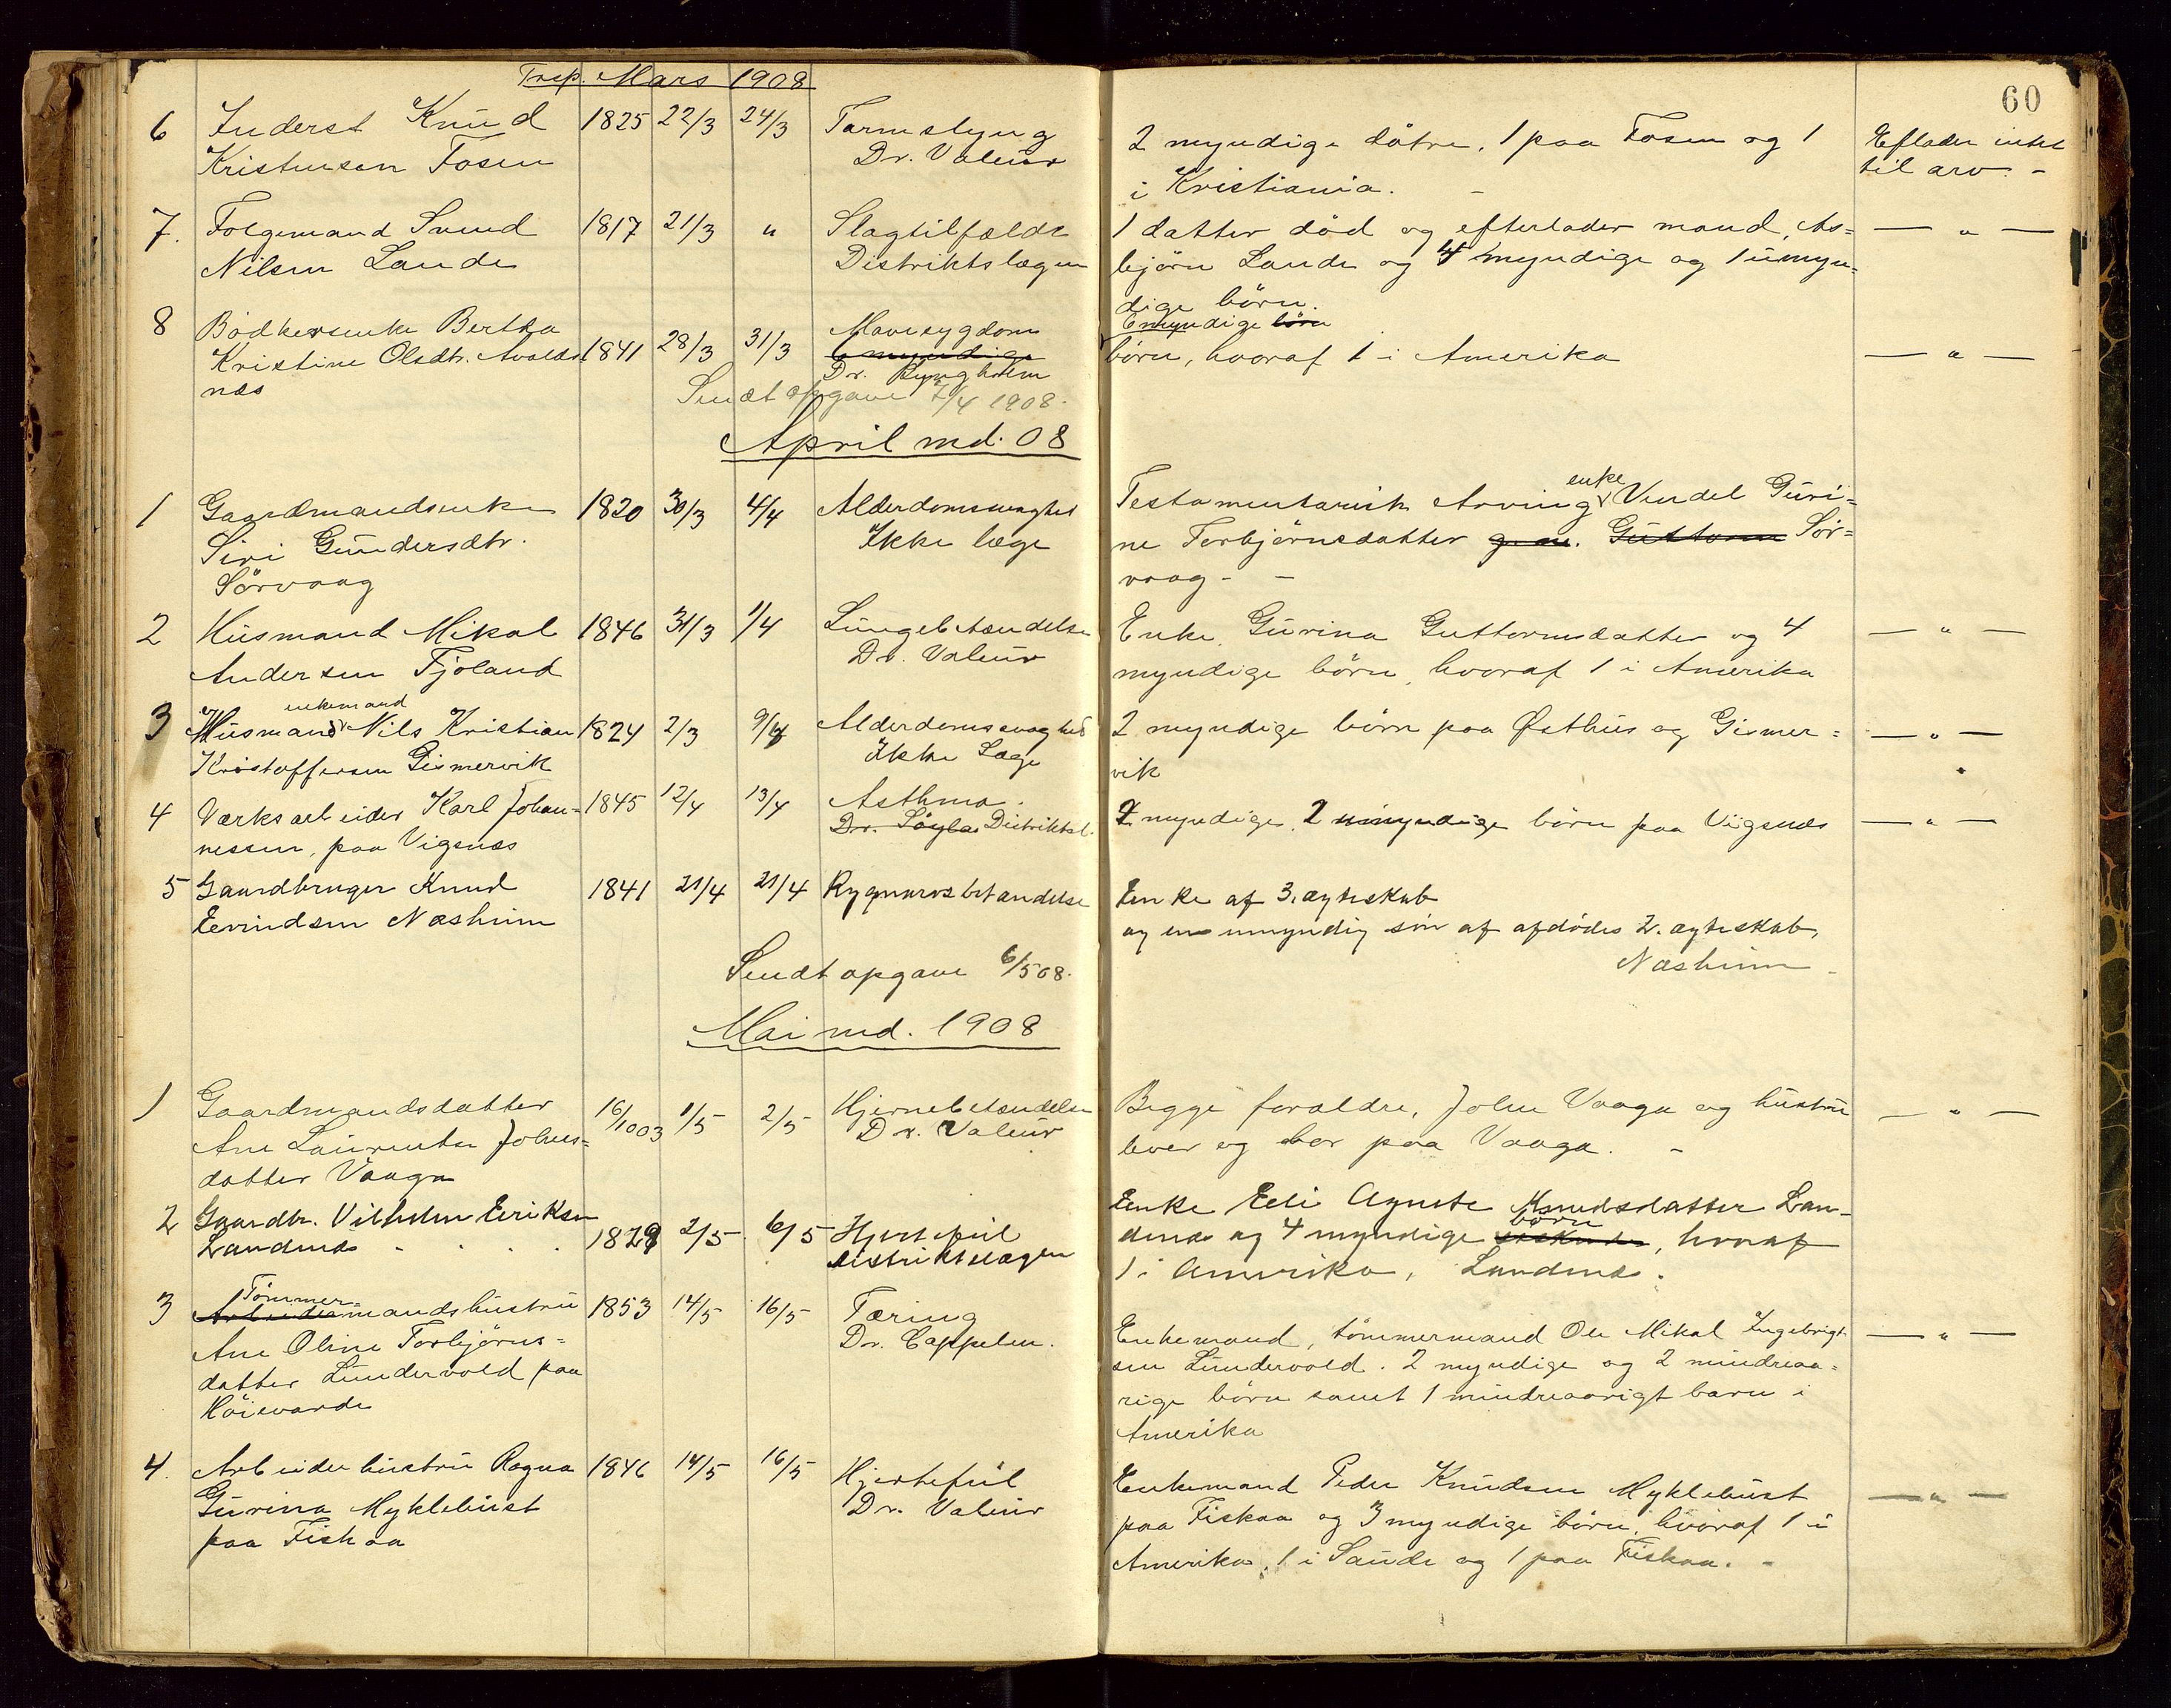 60
Trsp. Mars 1908
6 Inderst Knud 1825 22/3 24/3 Tarmslyng
Kristensen Fosen Dr. Valeur
2 myndige døtre, 1 paa Fosen og 1
i Kristiania. -
Eflader intet
til arv. -
7. Folgemand Svend 1817 21/3 " Slagtilfælde
Nilsen Lande Distriktslægen
1 datter død og efterlader mand, As=
bjørn Lande og 4 myndige og 1 umyn=
dige børn.
— " —
8 Bødkerenke Bertha Mavesygdom
Kristine Olsdtr. Avalds 1841 28/3 31/3 6 myndige
næs Dr. Ryngholm
6 myndige børn
børn, hvoraf 1 i Amerika
— " —
Sendt opgave 7/4 1908.
April md. 08
1 Gaardmandsenke 1820 30/3 4/4 Alderdomssvaghed
Siri Gundersdtr. Ikke læge
Sørvaag
enke
Testamentarisk Arving Vendel Guri=
ne Torbjørnsdatter g. m. Guttorm Sør=
vaag - -
2 Husmand Mikal 1846 31/3 1/4 Lungebetændelse
Andersen Fjoland Dr. Valeur
Enke Gurina Guttormsdatter og 4
myndige børn, hvoraf 1 i Amerika
— " —
enkemand
3 Husmand Nils Kristian 1824 2/3 9/4 Alderdomssvaghed
Kristoffersen Gismervik Ikke Læge
2 myndige børn paa Østhus og Gismer=
vik
— " —
4 Værksarbeider Karl Johan= 1845 12/4 13/4 Asthma.
nessen, paa Vigsnæs Dr. Søyla Distriktsl.
2 myndige, 2 umyndige børn paa Vigsnæs
— " —
5 Gaardbruger Knud 1841 21/4 21/4 Rygmarvsbetændelse
Eevindsen Næsheim
Enke af 3. ægteskab
og en umyndig søn af afdødes 2. ægteskab,
Næsheim -
Sendt opgave 6/5 08.
Mai md. 1908
1 Gaardmandsdatter 16/10 03 1/5 2/5 Hjernebetændelse
Ane Laurentse Johns= Dr. Valeur
datter Vaaga
Begge forældre, John Vaaga og hustru
lever og bor paa Vaaga. -
— " —
2 Gaardbr. Vilhelm Eeriksen
Landenæs - . . . 1829 2/5 6/5 Hjertefeil
Distriktslægen
Enke Eeli Agnete Knudsdatter Lan-
børn
denæs og 4 myndige , hvoraf
1 i Amerika, Landenæs.
Tømmer
3 Arbeidermandshustru 1853 14/5 16/5 Tæring
Ane Oline Torbjørns= Dr. Cappelen.
datter Lundervold paa
Høievarde
Enkemand, tømmermand Ole Mikal Ingebrigt-
sen Lundervold. 2 myndige og 2 mindreaa=
rige børn samt 1 mindreaarigt barn i
Amerika
— " —
4. Arbeiderhustru Ragna 1846 14/5 16/5 Hjertefeil
Gurina Myklebust Dr. Valeur
paa Fiskaa
Enkemand Peder Knudsen Myklebust
paa Fiskaa og 3 myndige børn, hvoraf 1 i
Amerika, 1 i Saude og 1 paa Fiskaa. -
— " —